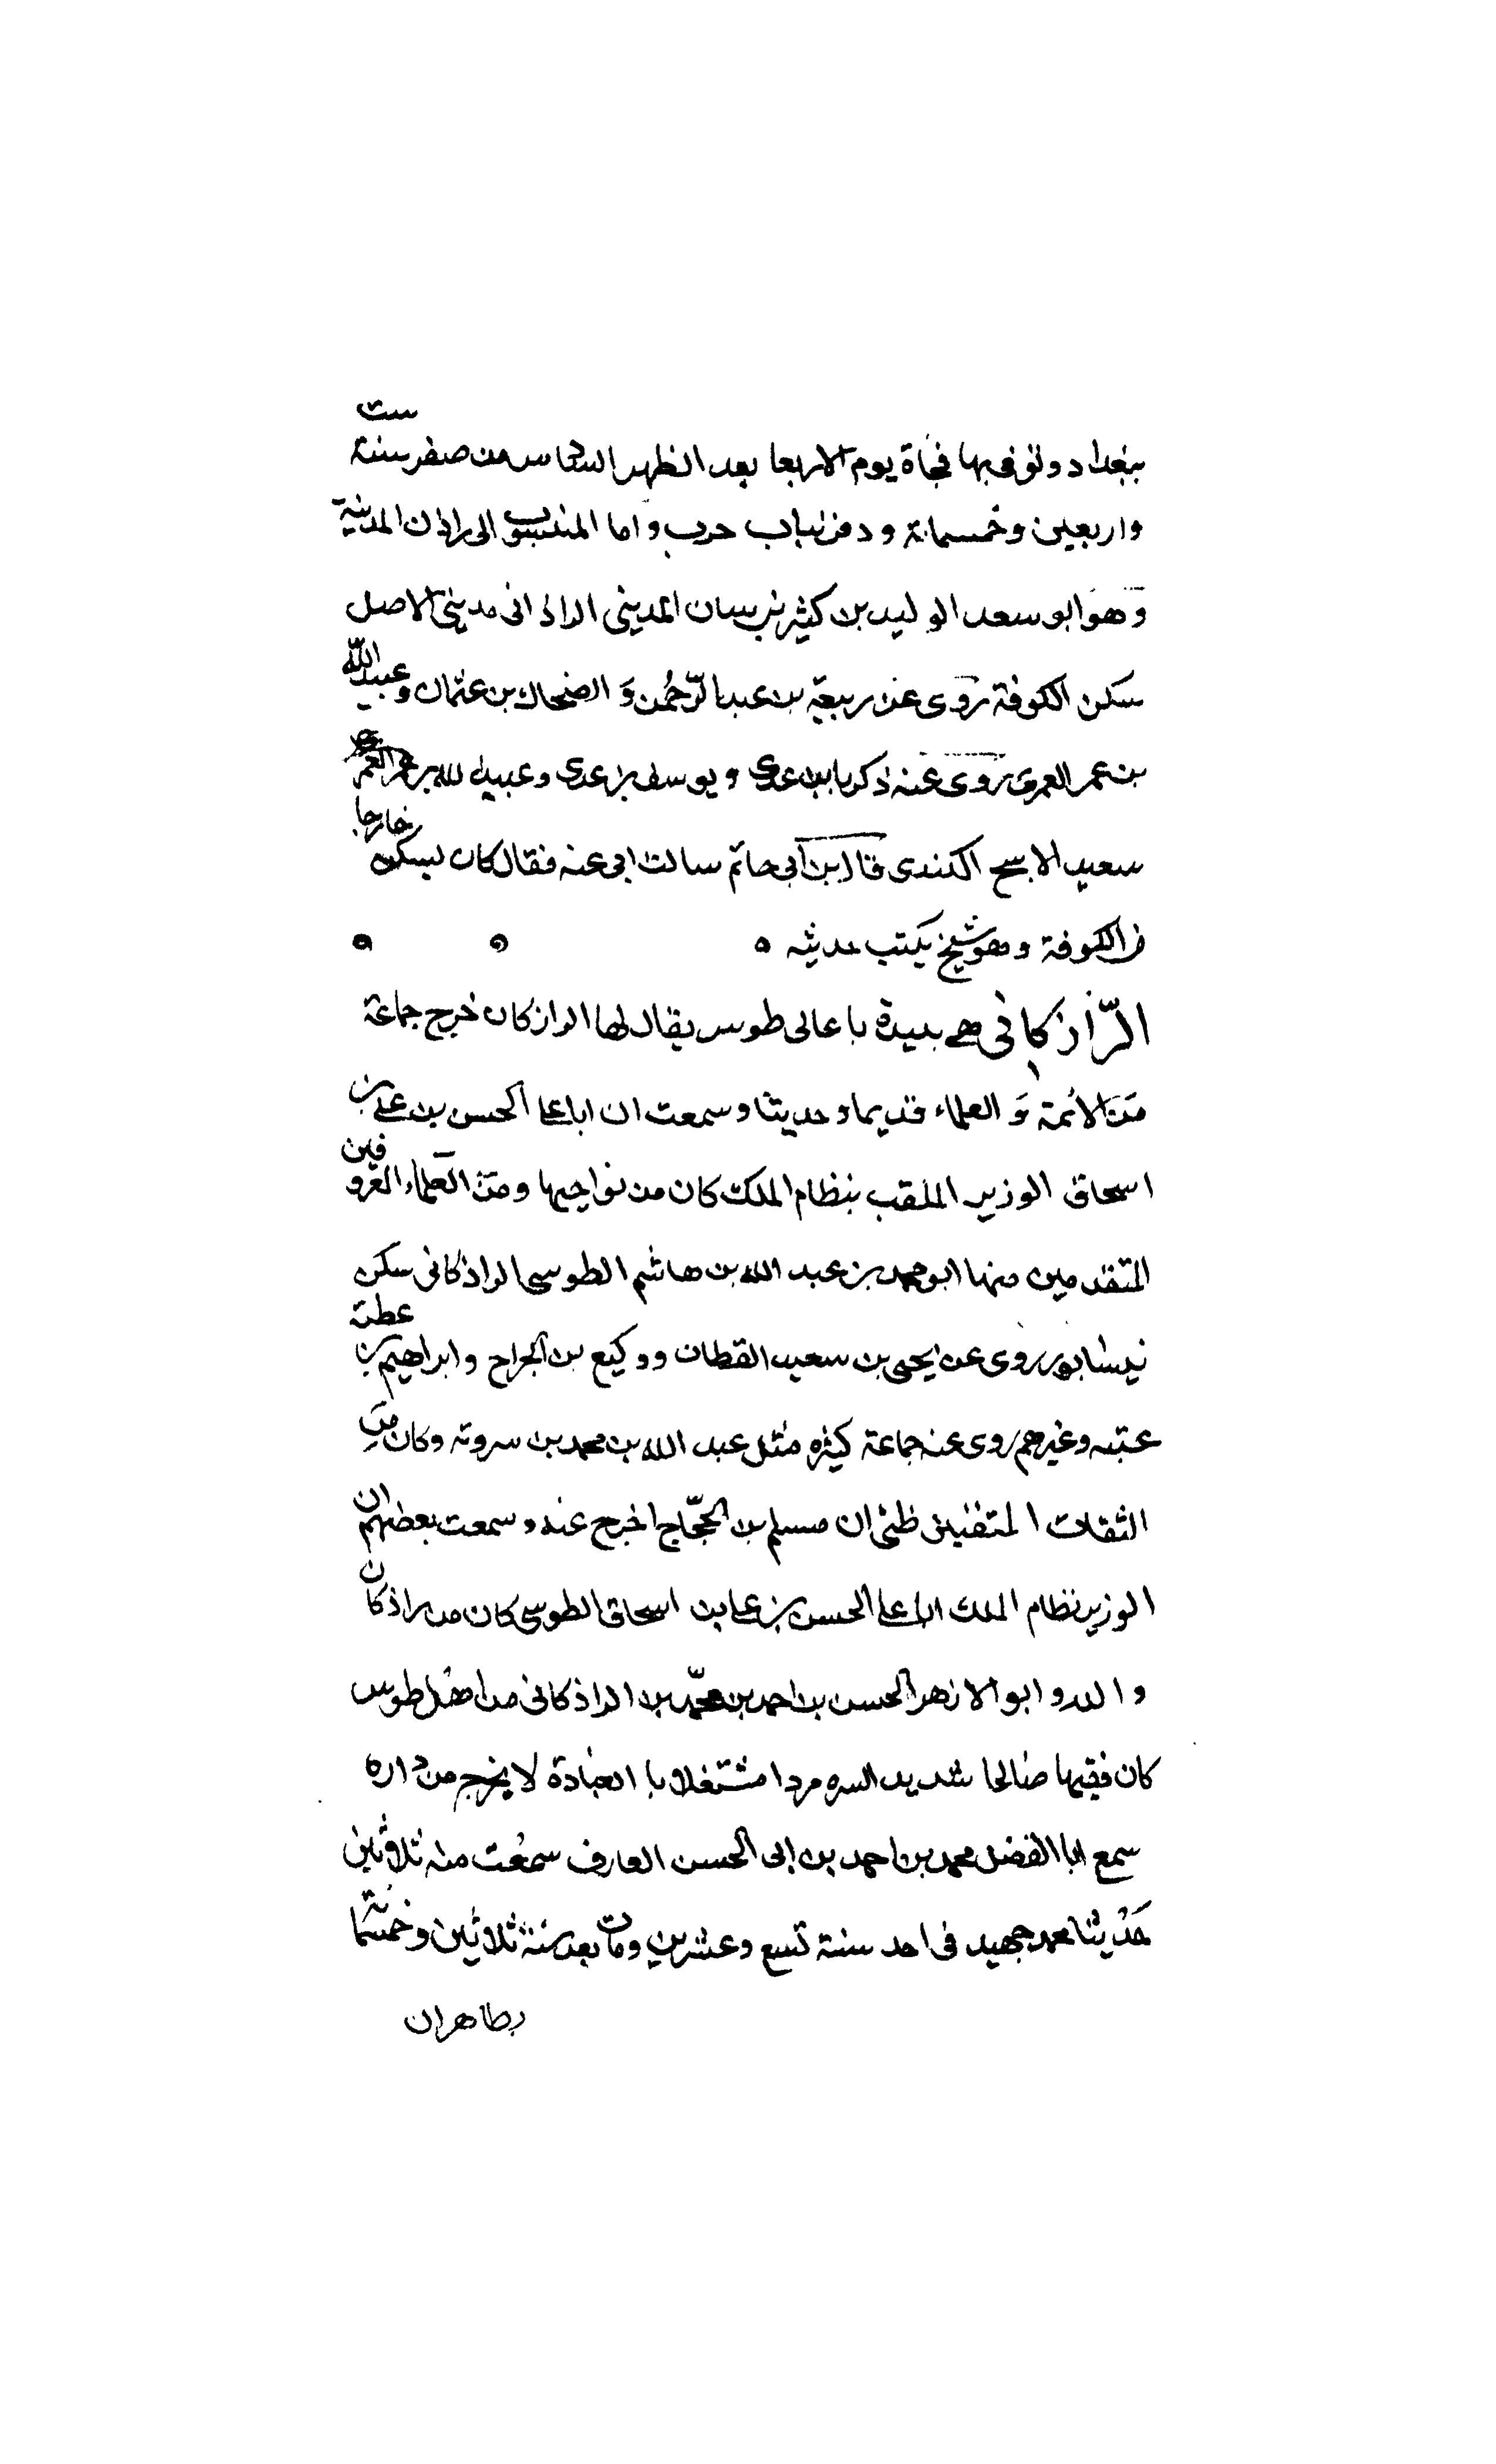 ببغداد وتوفى بها فجاة يوم الاربعا بعد الظهر السادس من صفر سنة ست
واربعين وخمسمائة ودفن بباب حرب واما المنسوب الى راذان المدينة
وهو ابو سعد الوليد بن كثير بن سنان المدينى الراذانى مدينى الاصل
سكن الكوفة روى عن ربيعة بن عبد الرّحمن وَ الضحاك بن عثمان وعبيد اللّه
بن عمر العمرى روى عنه زكريا بن عدى و يوسف بن عدى وعبيد الله بن
سعيد الاشج الكندى قال ابن ابى حاتم سالت ابى عنه فقال كان يسكن خارجا
من الكوفة وهو شيخ يكتب حديثه ه ه ه
الرّاذكانى هى بليدة باعالى طوس يقال لها الراذكان خرج جماعة
من الائمة وَ العلماء قديما وحديثا وسمعت ان ابا على الحسن بن على بن
اسحاق الوزير الملقب بنظام الملك كان من نواحيها ومن العلماء المعروفين
المتقدمين منها ابو محمد بن عبد الله بن هاشم الطوسى الراذكانى سكن
نيسابور روى عن يحيى بن سعيد القطان ووكيع بن الجراح وابراهيم بن عطية
عتبه وغيرهم روى عنه جماعة كثيره مثل عبد الله بن محمد بن سروته وكان من
الثقات المتقنين ظنى ان مسلم بن الحجّاج اخرج عنه وسمعت بعضهم ان
الوزير نظام الملك ابا على الحسن بن على بن اسحاق الطوسى كان من راذكان
والله و ابو الازهر الحسن بن احمد بن محمّد بن الراذكانى من اهل طوس
كان فقيها صالحا شديد السره مردا مشتغلا با العبادة لا يخرج من داره
سمع ابا الفضل محمد بن احمد بن ابى الحسن العارف سمعت منه ثلاثين
حديثا بجهد جهيد فى احد سنة تسع وعشرين ومات بعد سنة ثلاثين وخمسمائة
بطاهران